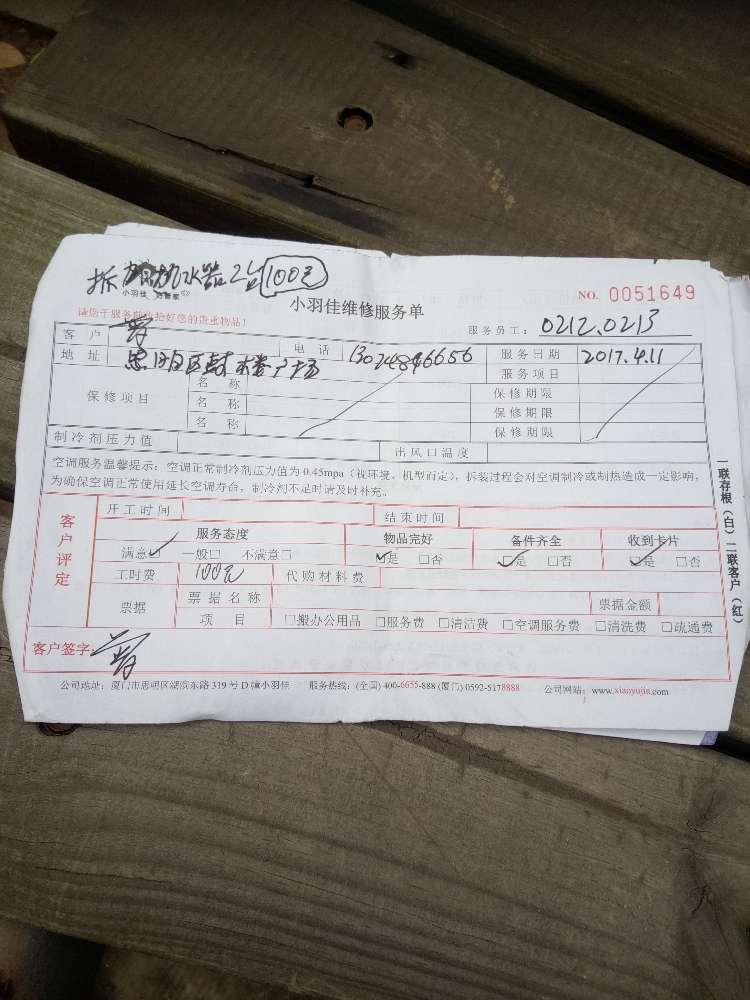 拆 水器2台 100元
小羽佳
小羽佳维修服务单
NO. 0051649
请您于服务前收拾好您的贵重物品！
服务员工： 0212.0213
客 户 电 话 13024846656 服务日期 2017.4.11
地 址 思明区 广场 服务项目
保修项目 名 称 保修期限
名 称 保修期限
名 称 保修期限
制冷剂压力值 出风口温度
空调服务温馨提示：空调正常制冷剂压力值为0.45mpa（视环境、机型而定），拆装过程会对空调制冷或制热造成一定影响，
为确保空调正常使用延长空调寿命，制冷剂不足时请及时补充。
客户评定
开工时间 结束时间
服务态度 物品完好 备件齐全 收到卡片
满意☑ 一般□ 不满意□ ☑是 □否 ☑是 □否 ☑是 □否
工时费 100元 代购材料费
票据 票据名称 票据金额
项 目 □搬办公用品 □服务费 □清洁费 □空调服务费 □清洗费 □疏通费
客户签字：
一联存根（白）二联客户（红）
公司地址：厦门市思明区湖滨东路319号D幢小羽佳 服务热线：(全国) 400-6655-888 (厦门) 0592-5178888 公司网站：www.xiaoyujia.com